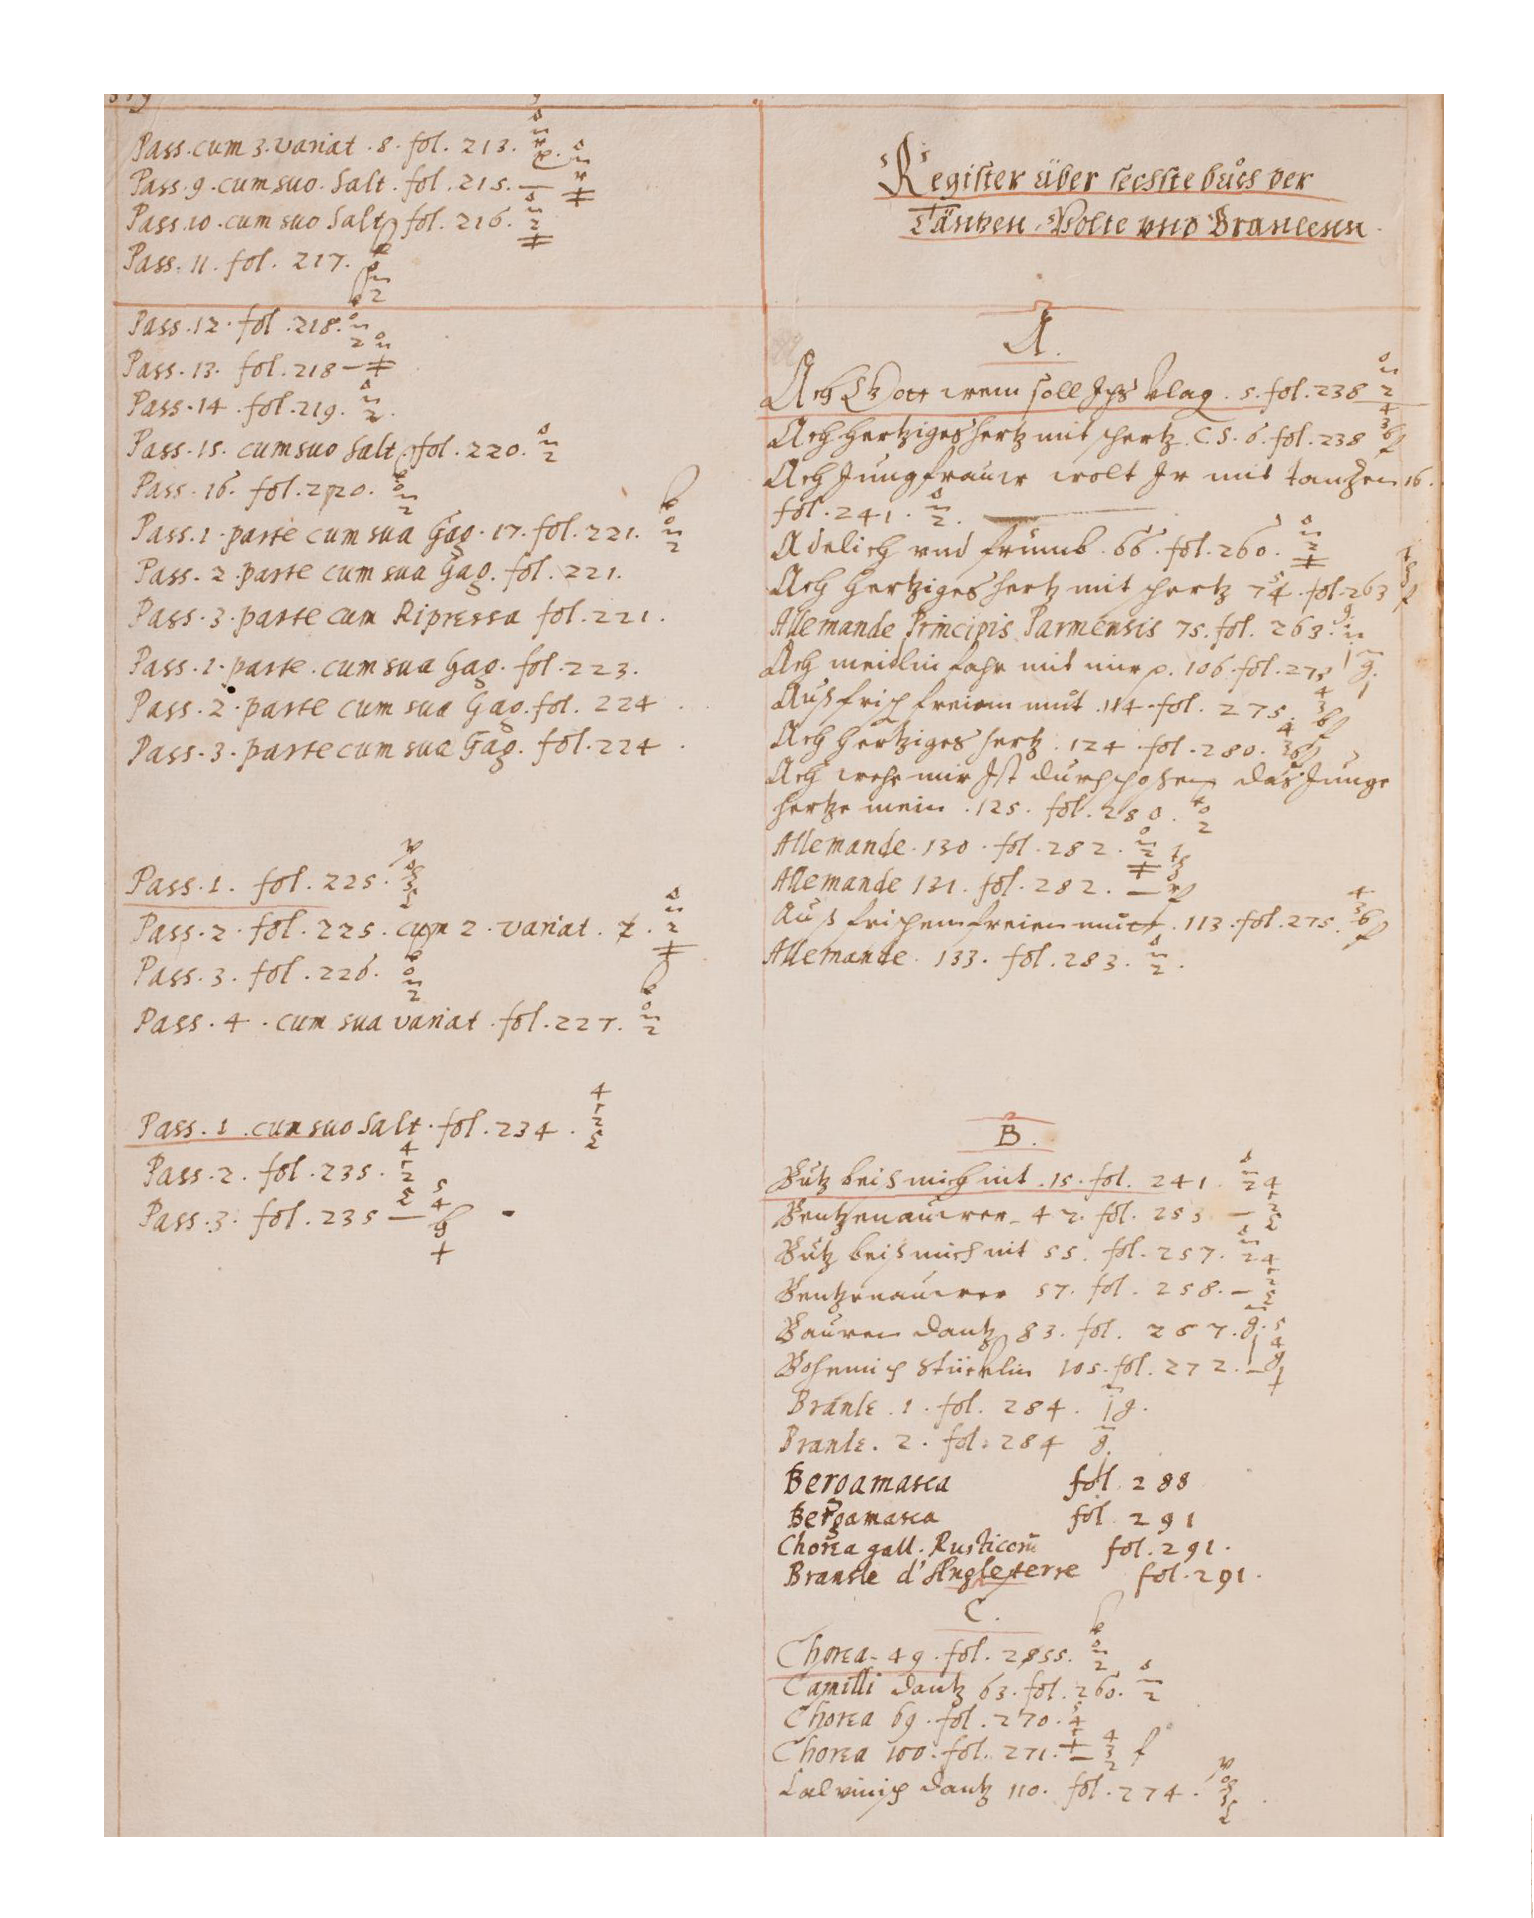 Pass. cum 3. variat. 8. fol. 213.
Pass. 9. cum suo. Salt. fol. 215.
Pass. 10. cum suo Salt. fol. 216.
Pass. 11. fol. 217.
Pass. 12. fol. 218.
Pass. 13. fol. 218
Pass. 14. fol. 219.
Pass. 15. cum suo Salt. fol. 220.
Pass. 16. fol. 220.
Pass. 1. parte cum sua Gag. 17. fol. 221.
Pass. 2. parte cum sua Gag. fol. 221.
Pass. 3. parte cum Ripressa fol. 221.
Pass. 1. parte. cum sua Gag. fol. 223.
Pass. 2. parte cum sua Gag. fol. 224
Pass. 3. parte cum sua Gag. fol. 224
Pass. 1. fol. 225.
Pass. 2. fol. 225. cum 2. variat.
Pass. 3. fol. 226.
Pass. 4. cum sua variat. fol. 227.
Pass. 1. cum suo Salt. fol. 234.
Pass. 2. fol. 235.
Pass. 3. fol. 235
Register über sechste buch der
Täntzen. Volte und Branlenn.
A.
Ach Gott wem soll Ichs klag. 5. fol. 238
Ach hertziges hertz mit schertz. C.S. 6. fol. 238
Ach Jungfrauw wolt Ir mit tantzen 16.
fol. 241.
Adelich und frumb. 66. fol. 260.
Ach hertziges hertz mit schertz 74. fol. 263
Allemande Principis Parmensis 75. fol. 263.
Ach meidlin fahr mit mir p. 106. fol. 273
Auß frisch freiem mut. 114. fol. 275.
Ach hertziges hertz. 124. fol. 280.
Ach wehe mir Ist durchschossen das Junge
hertze mein. 125. fol. 280.
Allemande. 130. fol. 282.
Allemande 131. fol. 282.
Auß frischem freiem mutt. 113. fol. 275.
Allemande. 133. fol. 283.
B.
Butz beis mich nit. 15. fol. 241.
Bentzenauwrer. 42. fol. 253
Butz beis mich nit 55. fol. 257.
Bentzenauwrer 57. fol. 258.
Bauren dantz 83. fol. 267.
Bohemisch Stücklin 105. fol. 272.
Branle. 1. fol. 284.
Branle. 2. fol. 284
Bergamasca fol. 288
Bergamasca fol. 291
Chorea gall. Rusticorū fol. 291.
Bransle d'Angleterre fol. 291.
C.
Chorea. 49. fol. 255.
Camilli dantz 63. fol. 260.
Chorea 69. fol. 270.
Chorea 100. fol. 271.
Calvinisch dantz 110. fol. 274.